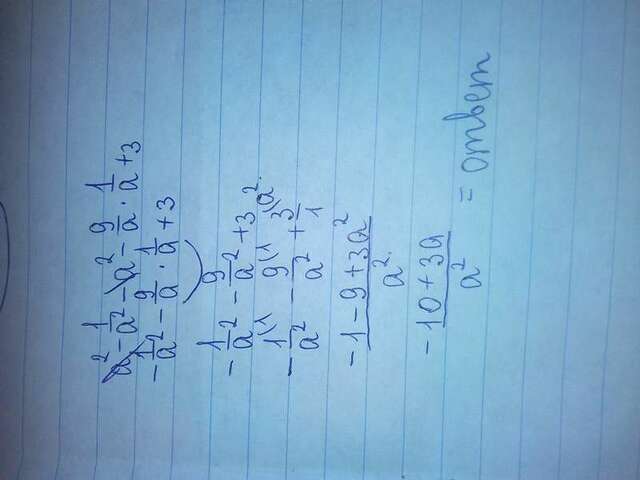 a² - 1/a² - a² - 9/a · 1/a + 3
- 1/a² - 9/a · 1/a + 3
- 1/a² - 9/a² + 3
- 1⁽¹/a² - 9⁽¹/a² + 3⁽a²/1
-1-9+3a²/a²
-10+3a/a² = ответ